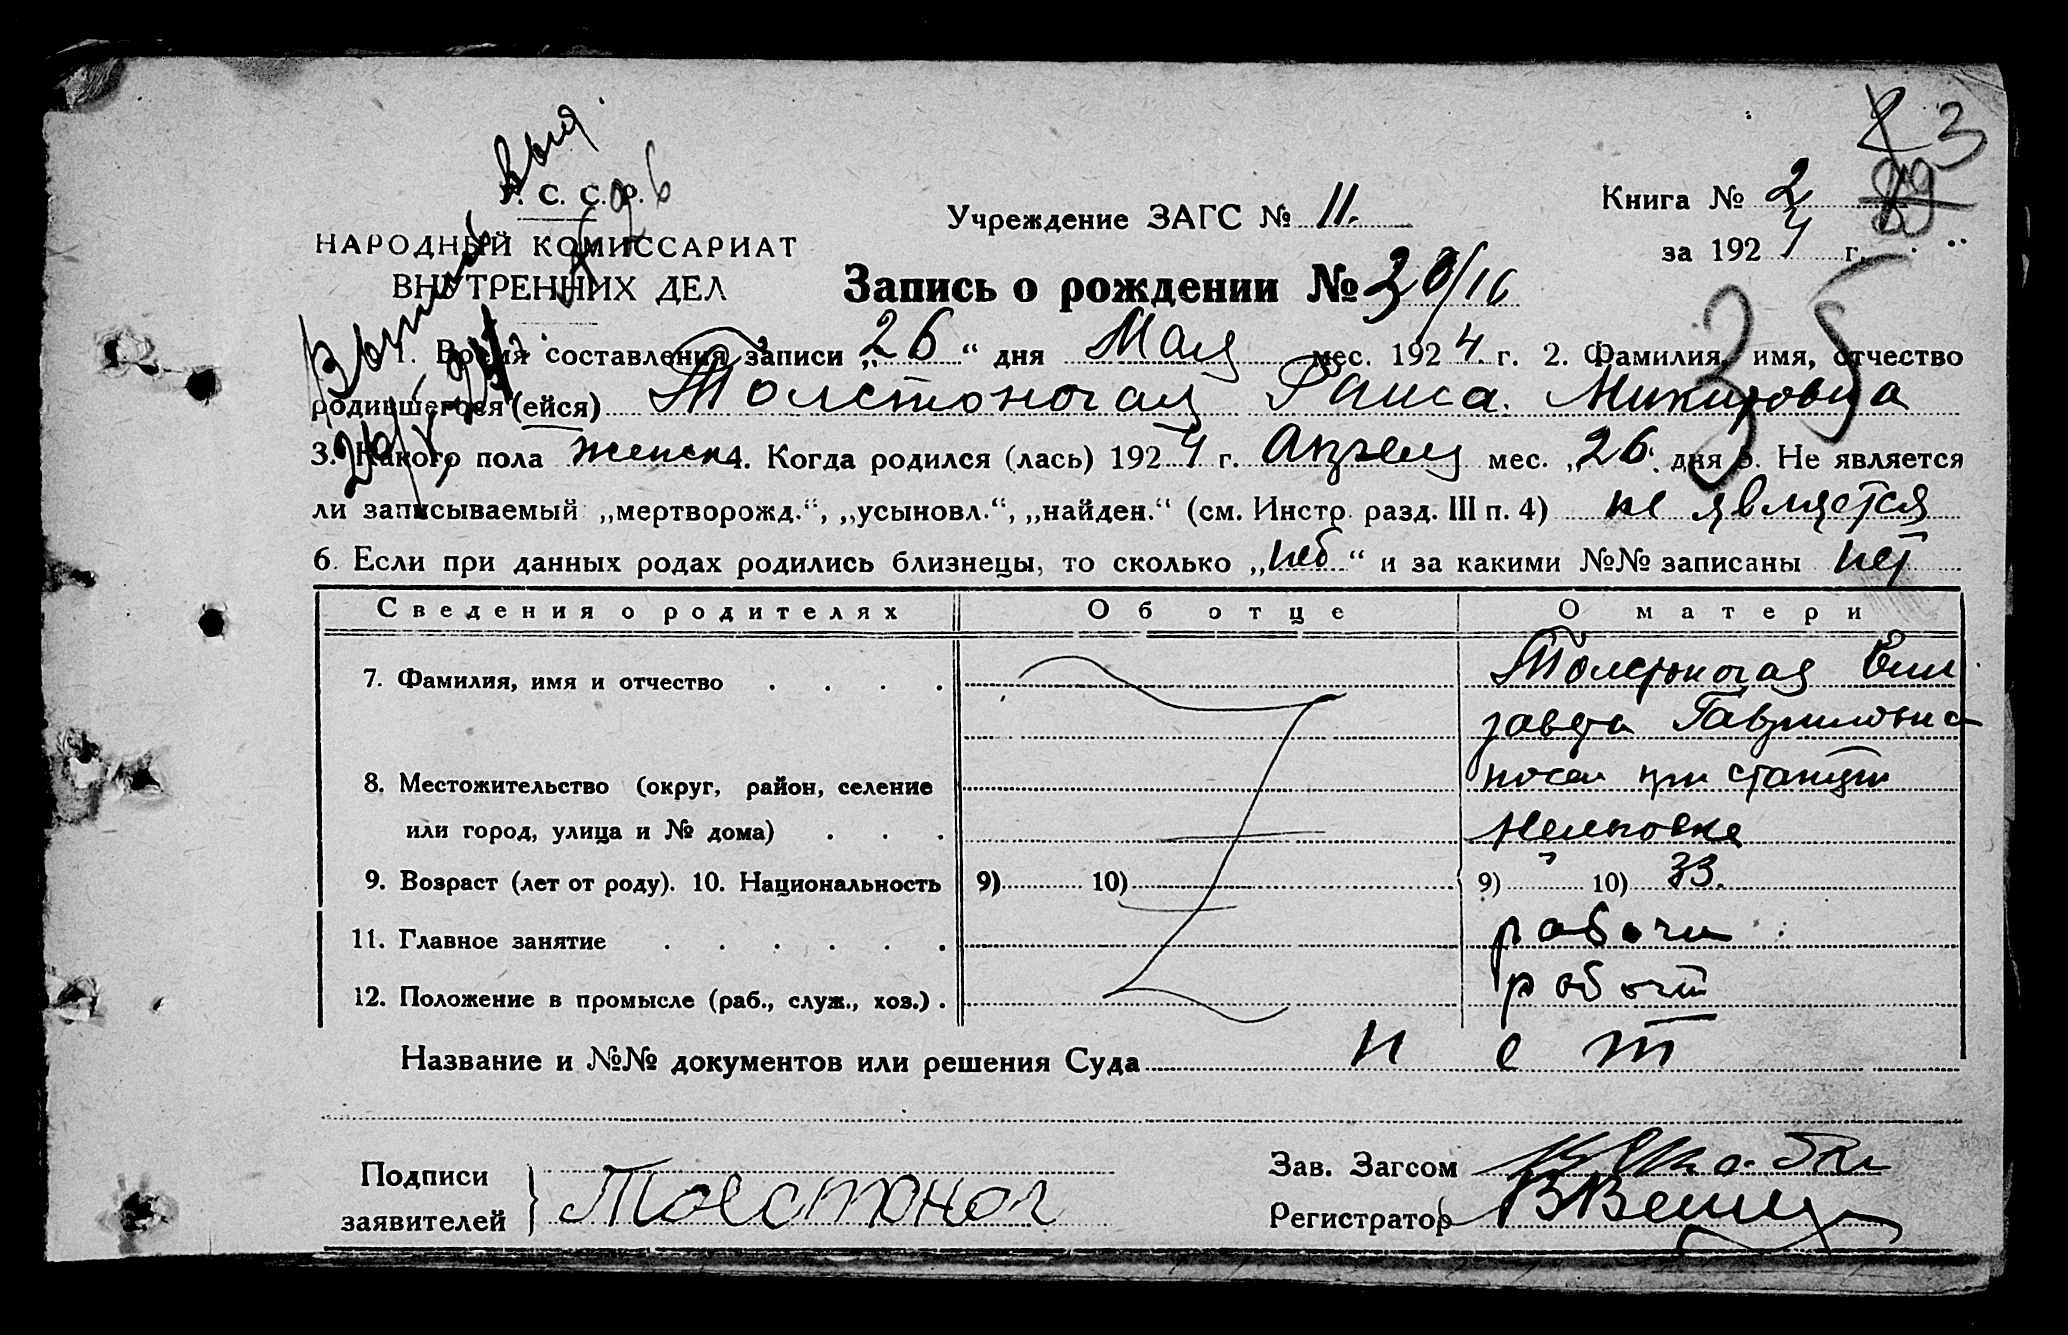 С. С. Р.
НАРОДНЫЙ КОМИССАРИАТ
ВНУТРЕННИХ ДЕЛ
Учреждение ЗАГС № 11.
Книга № 2
за 1924 г.
3
89
35
Запись о рождении № 30/16
1. Время составления записи „26“ дня Мая мес. 1924 г. 2. Фамилия, имя, отчество
родившегося (ейся) Толстоногая Раиса
3. Какого пола женск 4. Когда родился (лась) 1924 г. Апреля мес. „26“ дня 5. Не является
ли записываемый „мертворожд.“, „усыновл.“, „найден.“ (см. Инстр. разд. III п. 4) не является
6. Если при данных родах родились близнецы, то сколько „нет“ и за какими №№ записаны нет
Сведения о родителях Об отце О матери
7. Фамилия, имя и отчество . . . . Толстоногая Ели
завета Гавриловна
8. Местожительство (округ, район, селение посел при станции
или город, улица и № дома) . . .
9. Возраст (лет от роду). 10. Национальность 9) 10) 9) 10) 33.
11. Главное занятие . . . . . . рабочи
12. Положение в промысле (раб., служ., хоз.) .
Название и №№ документов или решения Суда нет
Подписи
заявителей } Толстоног
Зав. Загсом
Регистратор